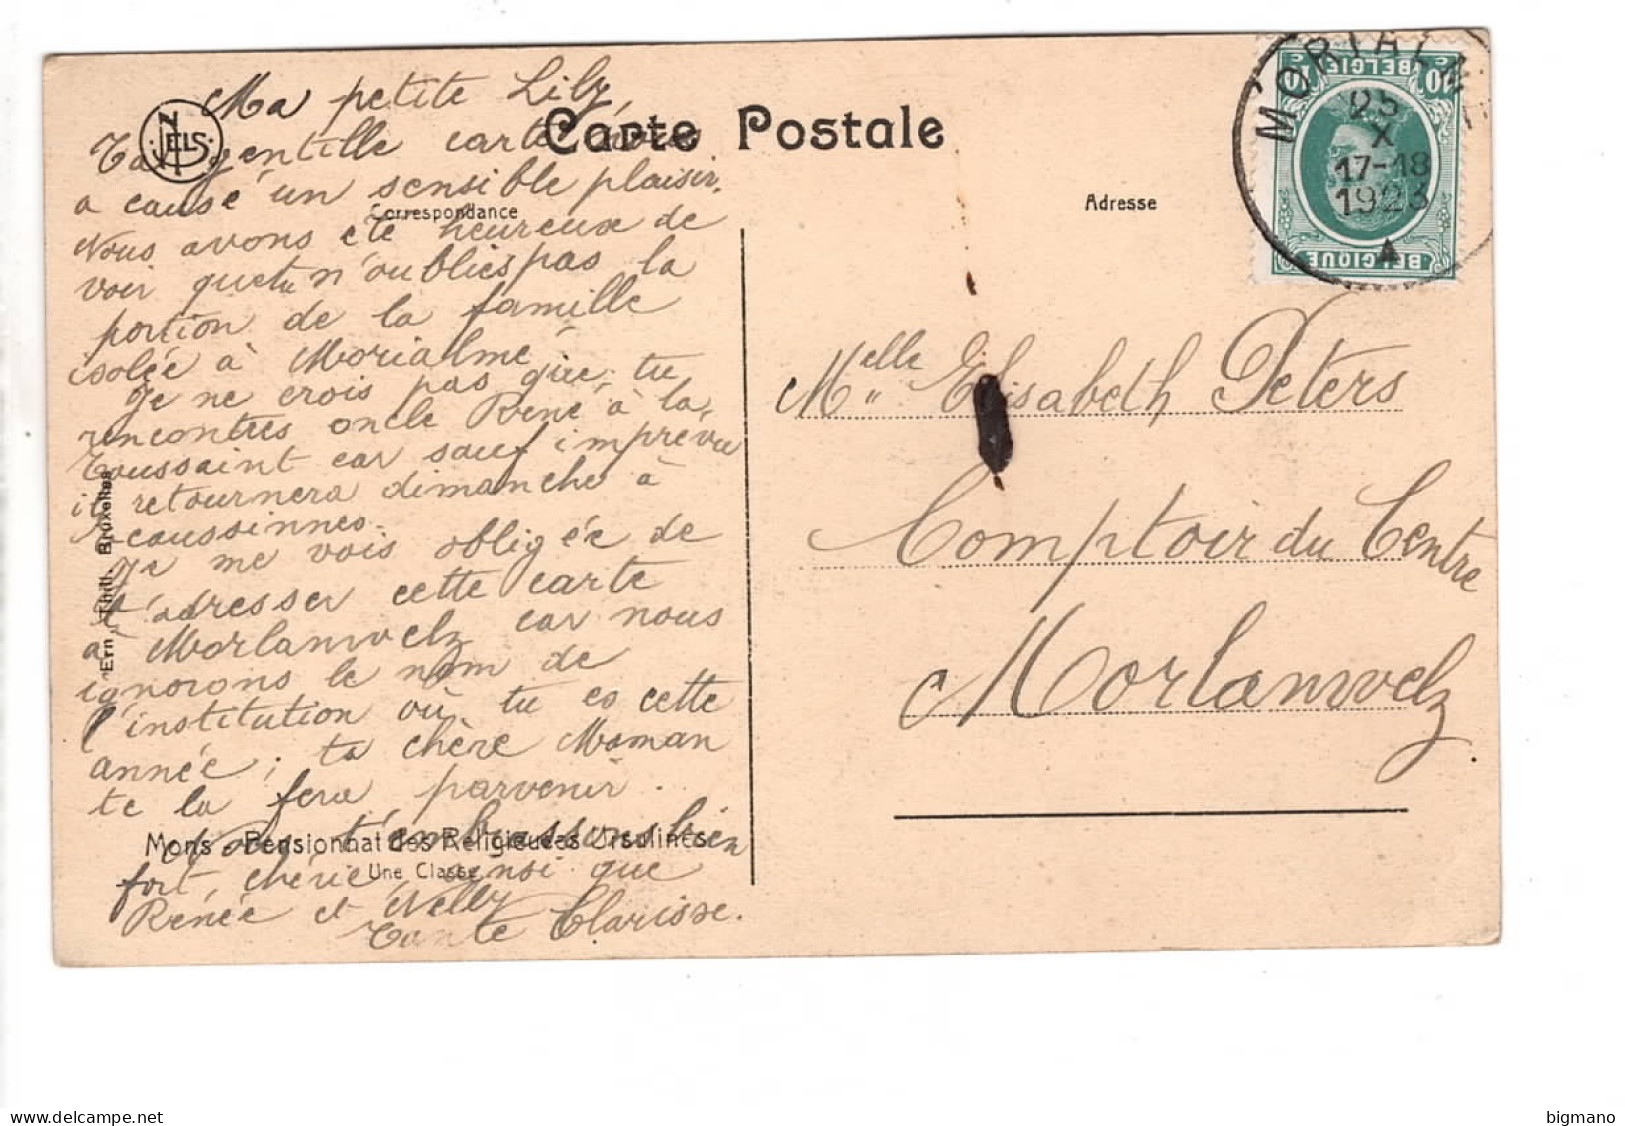 Ma petite Lily,
Ta gentille carte nous
a causé un sensible plaisir.
Nous avons été heureux de
voir que tu n'oublies pas la
portion de la famille
isolée à Morialmé
Je ne crois pas que tu
rencontres oncle René à la
Toussaint car sauf imprévu
il retournera dimanche à
Ecaussinnes.
Je me vois obligée de
t'adresser cette carte
à Morlanwelz car nous
ignorons le nom de
l'institution où tu es cette
année ; ta chère Maman
te la fera parvenir.
Nous t'embrassons bien
fort, chérie, ainsi que
Renée et Nelly
Tante Clarisse.
NELS
Carte Postale
Correspondance
Adresse
Ern. Thill, Bruxelles
Mons - Pensionnat des Religieuses Ursulines
Une Classe
BELGIE
10 c 10 c
BELGIQUE
MORIALMÉ
25
X
17-18
1923
A
Melle Elisabeth Peters
Comptoir du Centre
Morlanwelz
delcampe.net
bigmano